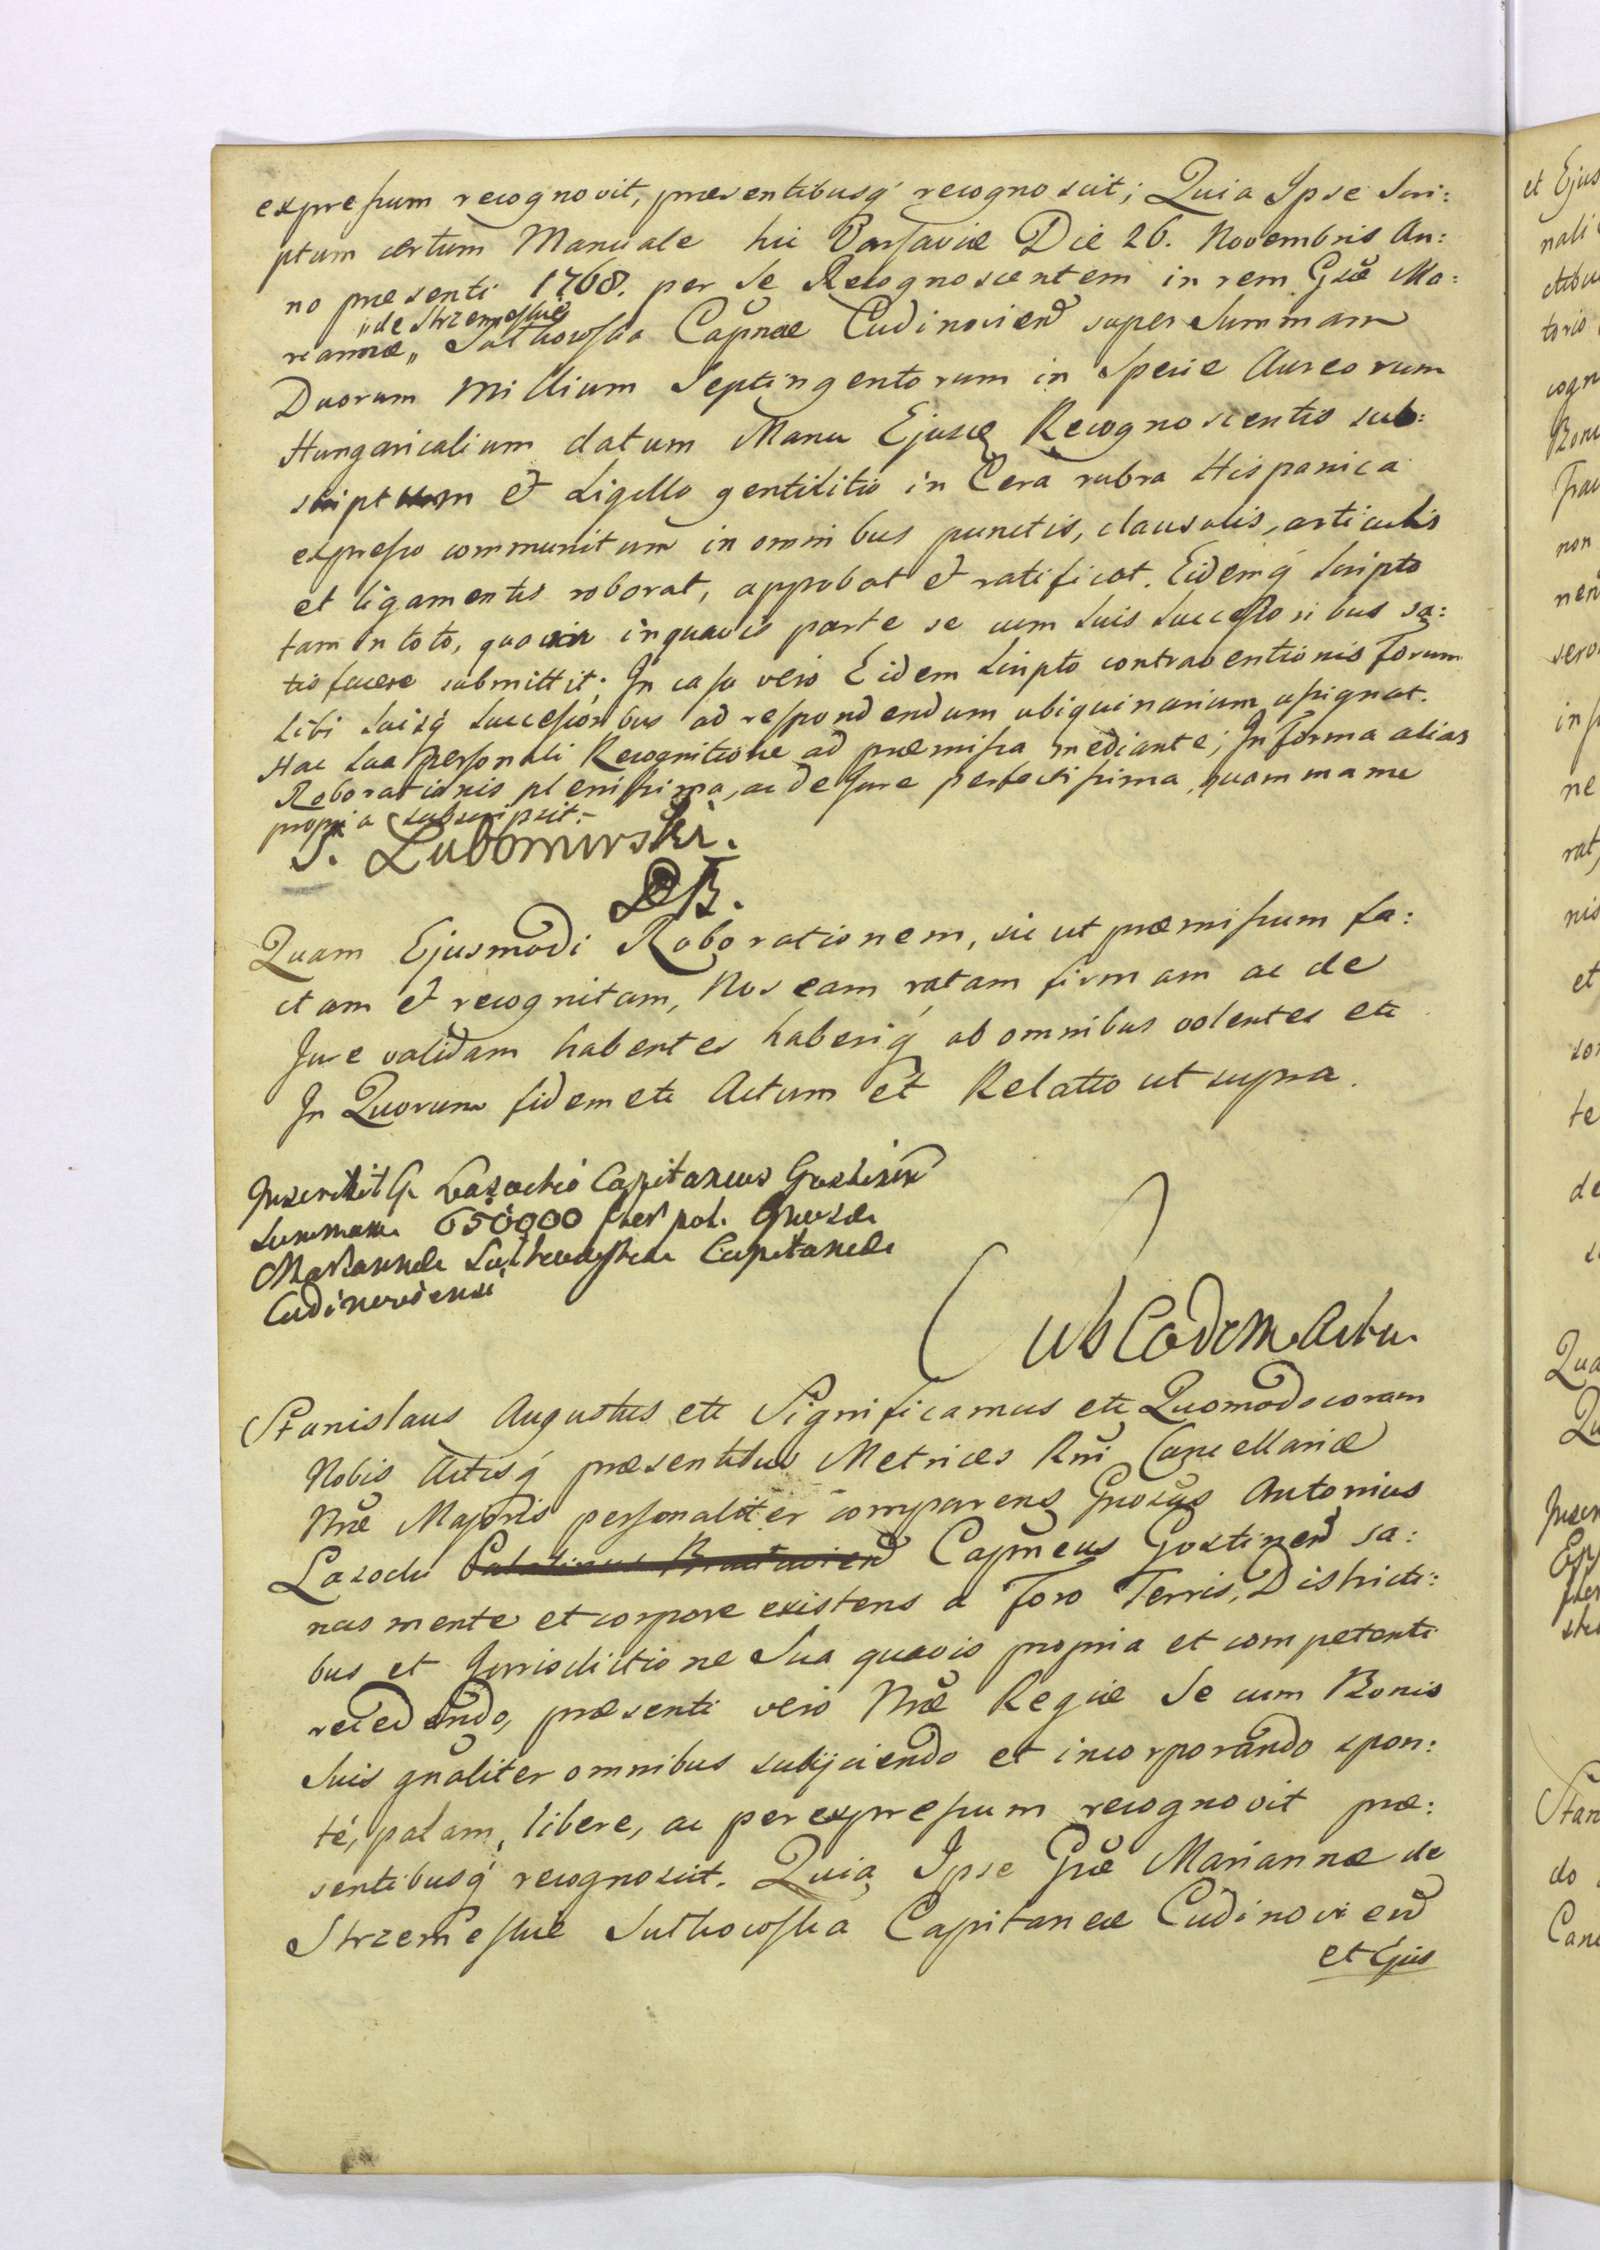 expressum recognovit, præsentibusq́ recognoscit; Quia Ipse Scri:
ptum certum Manuale hic Varsaviæ Die 26. Novembris An:
no præsenti 1768. per Se Recognoscentem in rem Gsæ Ma:
„de Strzemeskie
riannæ „ Sutkowska Capnæ Cudinovien super Summam
Duorum Millium Septingentorum in Specie Aureorum
Hungaricalium datum Manu Ejusq Recognoscentis sub:
scriptum et Sigillo gentilitio in Cera rubra Hispanica
expresso communitum in omnibus punctis, clausulis, articulis
et ligamentis roborat, approbat et ratificat. Eidemq́ Scripto
tam in toto, quam inquavis parte se cum Suis Successoribus sa:
tisfacere submittit; In casu vero Eidem Scripto contraventionis Forum
Sibi Suisq́ Successoribus ad respondendum ubiquinarium assignat.
Hac Sua Personali Recognitione ad præmissa mediante; In Forma alias
Roborationis plenissima, ac de Jure perfectissima, quam manu
propria subscripsit:-
S. Lubomirski.
Quam Ejusmodi Roborationem, sic ut præmissum fa:
ctam et recognitam, Nos eam ratam firmam ac de
Jure validam habentes haberiq́ ab omnibus volentes etc
In Quorum fidem etc Actum et Relatio ut supra.
Inscribit G. Lasocki Capitaneus Gostinen
Summam 650000 flor pol. Gnosæ
Mariannæ Sutkowska Capitaneæ
Cudinoviensi
Sub Eodem Actu.
Stanislaus Augustus etc Significamus etc Quomodo coram
Nobis Actisq́ præsentibus Metrices Rni Cancellariæ
Nræ Majoris personaliter comparens Gnosus Antonius
Lasocki Capneus Gostinen sa:
nus mente et corpore existens a Foro Terris, Districti:
bus et Jurisdictione Sua quavis propria et competenti
recedendo, præsenti vero Nræ Regiæ Se cum Bonis
Suis gnaliter omnibus subijciendo et incorporando spon:
té, palam, libere, ac per expressum recognovit præ:
sentibusq́ recognoscit. Quia Ipse Gsæ Mariannæ de
Strzemeskie Sutkowska Capitaneæ Cudinovien
et Ejus